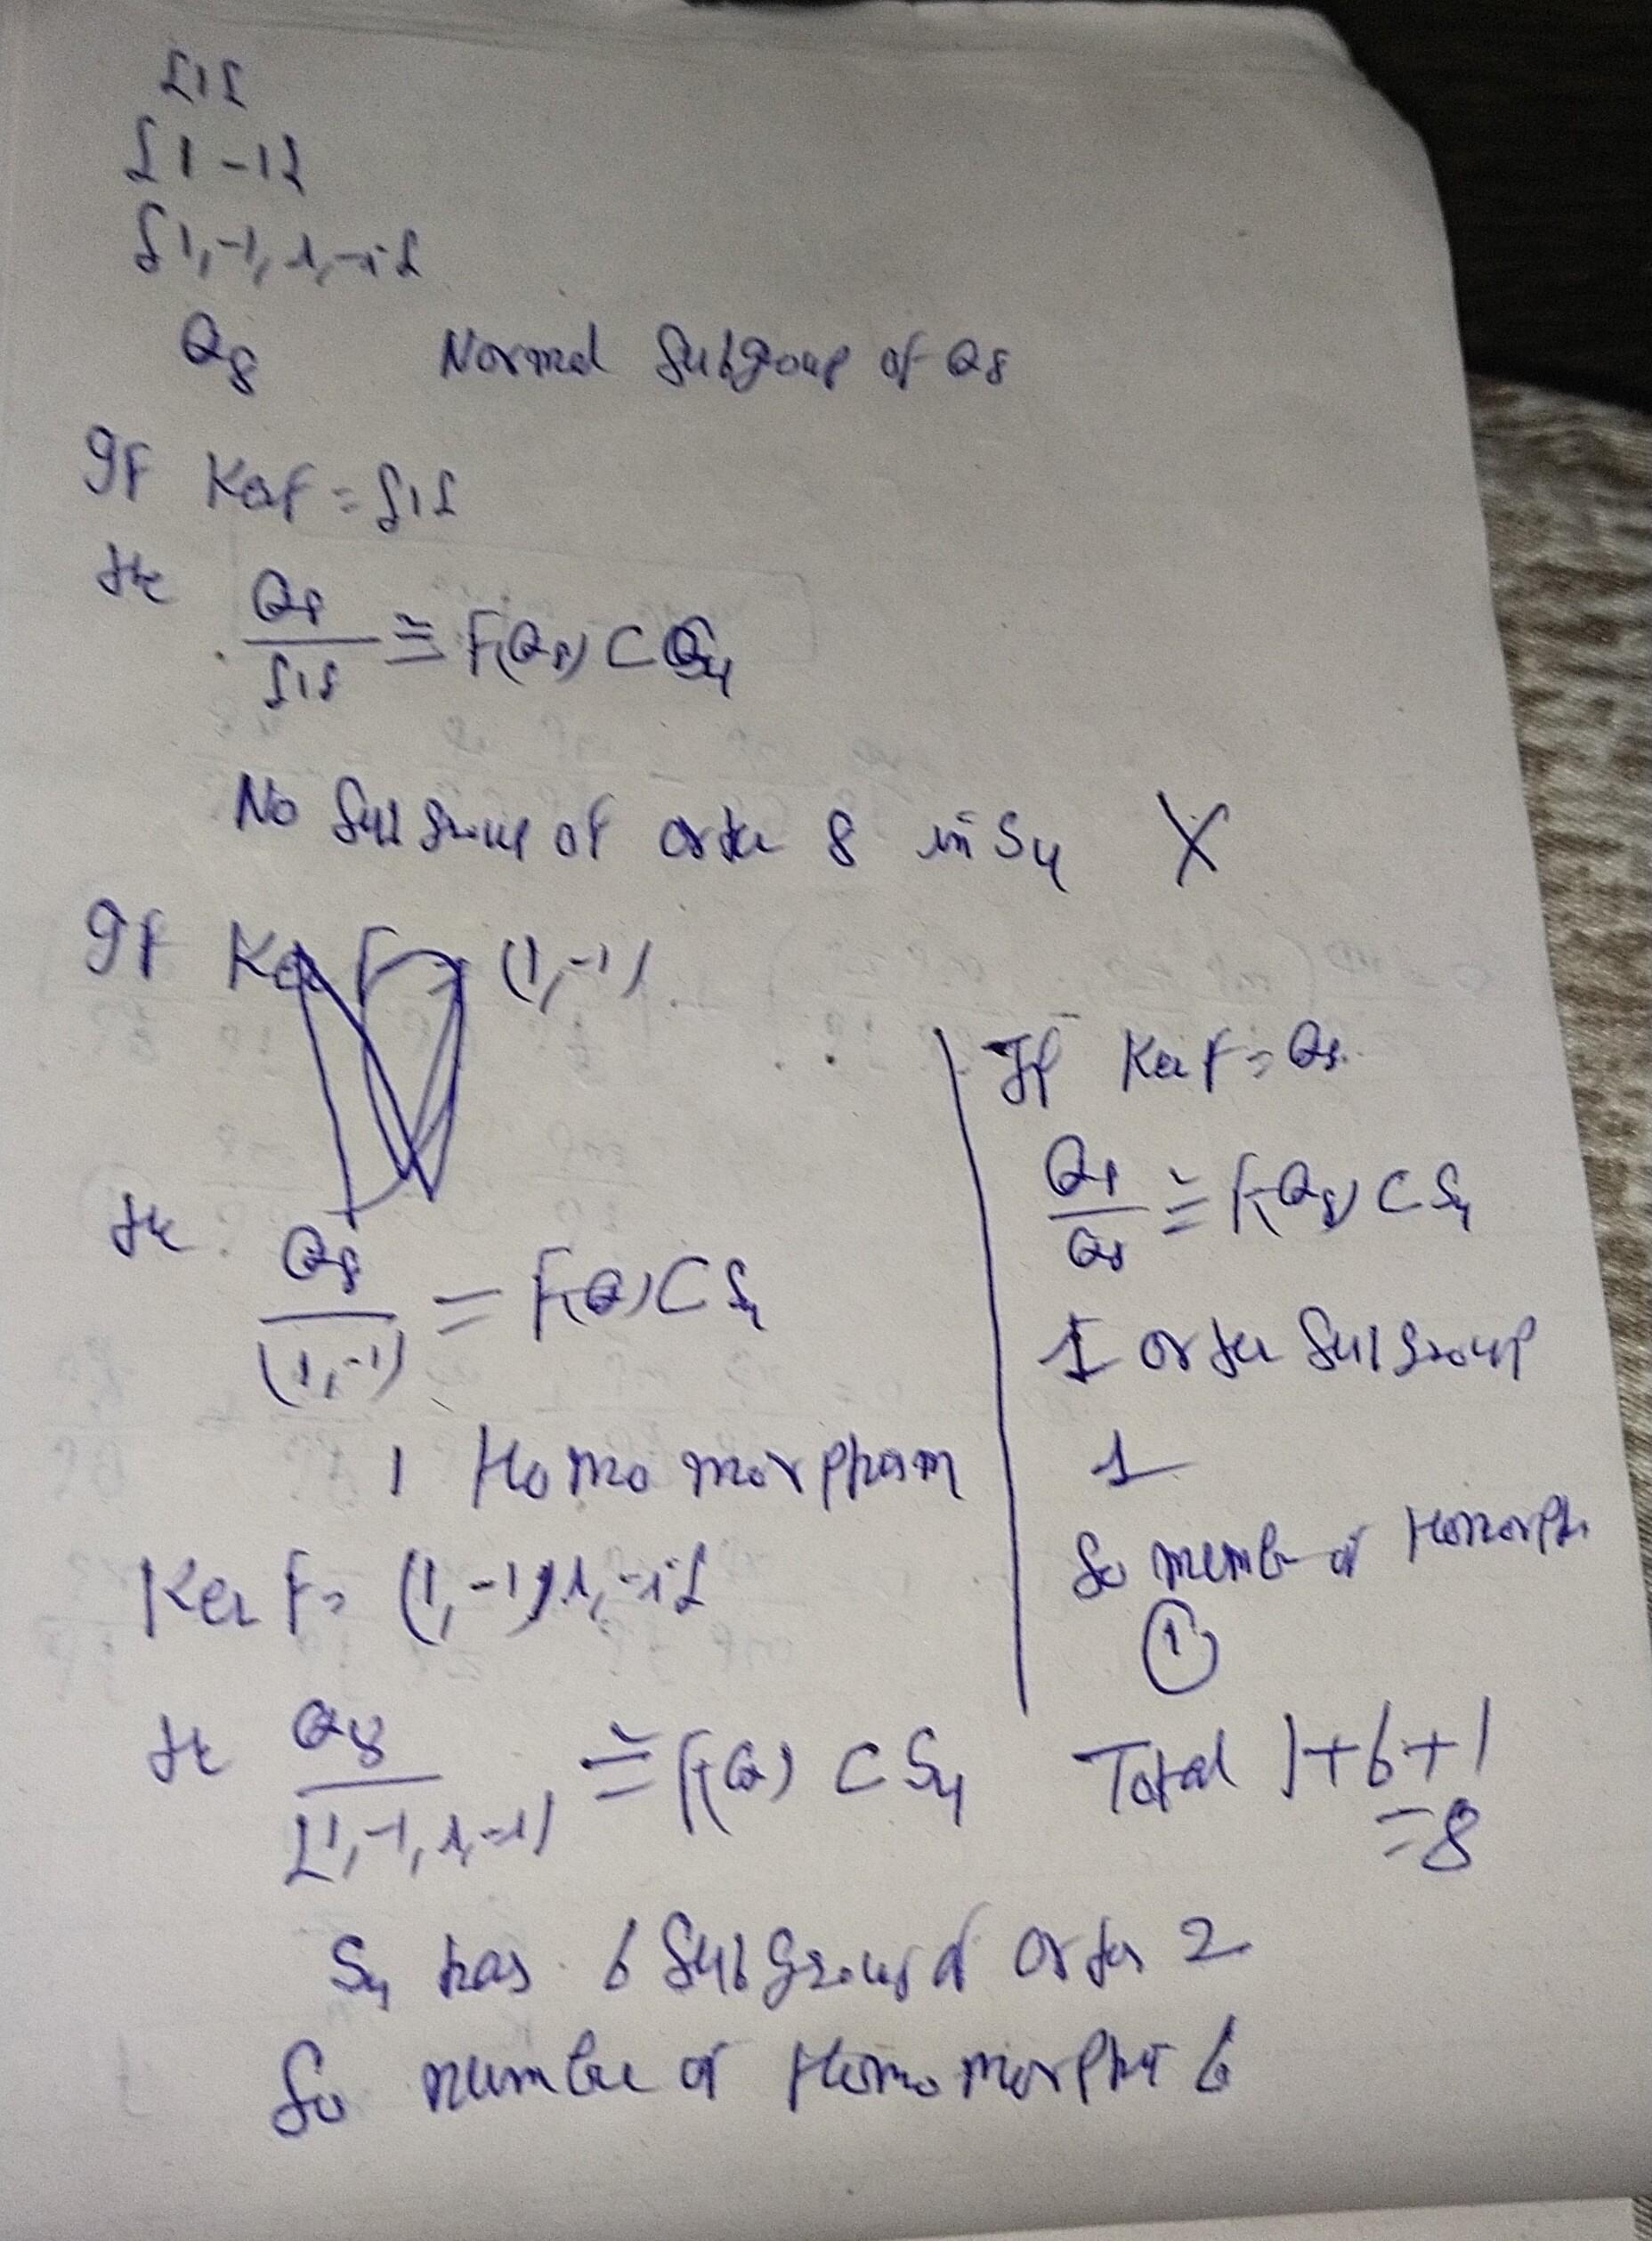 {1}
{1 -1}
{1, -1, i, -i}
Q8 Normal Subgroup of Q8
If Kerf = {1}
Q8/{1} ≅ F(Q8) ⊂ S4
No Subgroup of order 8 in S4 X
If Ker F = (1, -1)
Q8/(1, -1) = F(Q) ⊂ S4
1 Homo morphism
Ker F = (1, -1, i, -i}
Q8/{1, -1, i, -i) ≅ F(Q) ⊂ S4
S4 has 6 Subgroup of Order 2
So number of Homomorphi 6
If Ker f = Q8.
Q8/Q8 ≅ F(Q8) ⊂ S4
1 order Subgroup
1
So number of Homorph
1
Total 1+6+1
=8